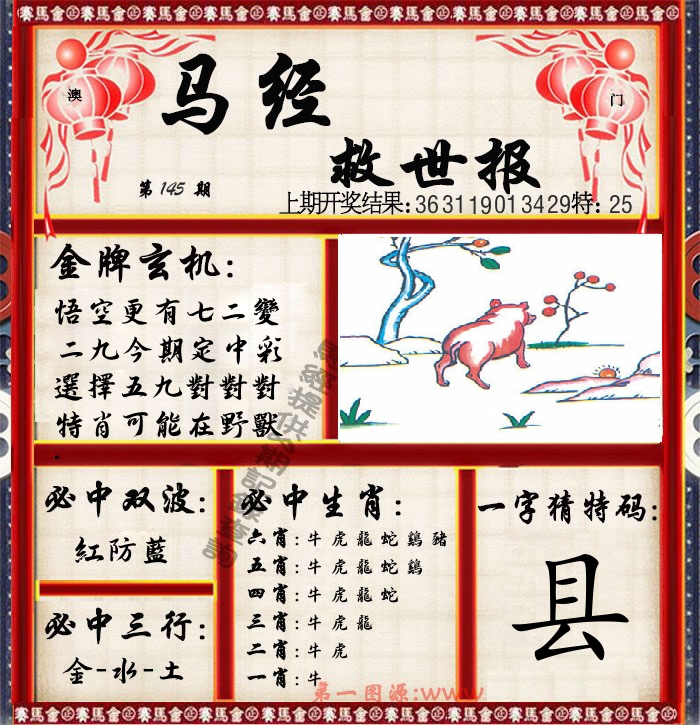 賽馬會 賽馬會 賽馬會 賽馬會 賽馬會 賽馬會 賽馬會 賽馬會 賽馬會
澳
门
马经
救世报
第145期
上期开奖结果:363119013429特:25
金牌玄机:
悟空更有七二變
二九今期定中彩
選擇五九對對對
特肖可能在野獸
必中双波:
紅防藍
必中三行:
金-水-土
必中生肖:
六肖:牛虎龍蛇鷄豬
五肖:牛虎龍蛇鷄
四肖:牛虎龍蛇
三肖:牛虎龍
二肖:牛虎
一肖:牛
一字猜特码:
县
第一图源:www